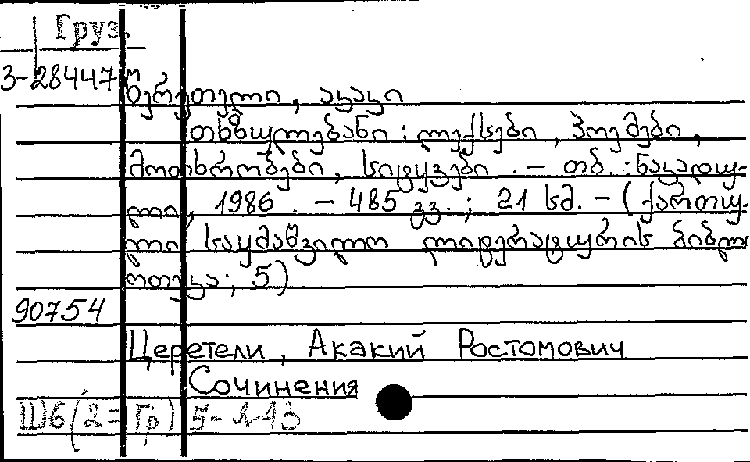 Груз.
3-28447
წერეთელი, აკაკი
თხზულებანი : ლექსები, პოემები,
მოთხრობები, სიტყვები. – თბ. : ნაკადუ-
ლი, 1986. – 485 გვ. ; 21 სმ. – (ქართუ-
ლი საყმაწვილო ლიტერატურის ბიბლი
ოთეკა; 5)
90754
Церетели, Акакий Ростомович
Сочинения
Ш6(2=Гр)5-